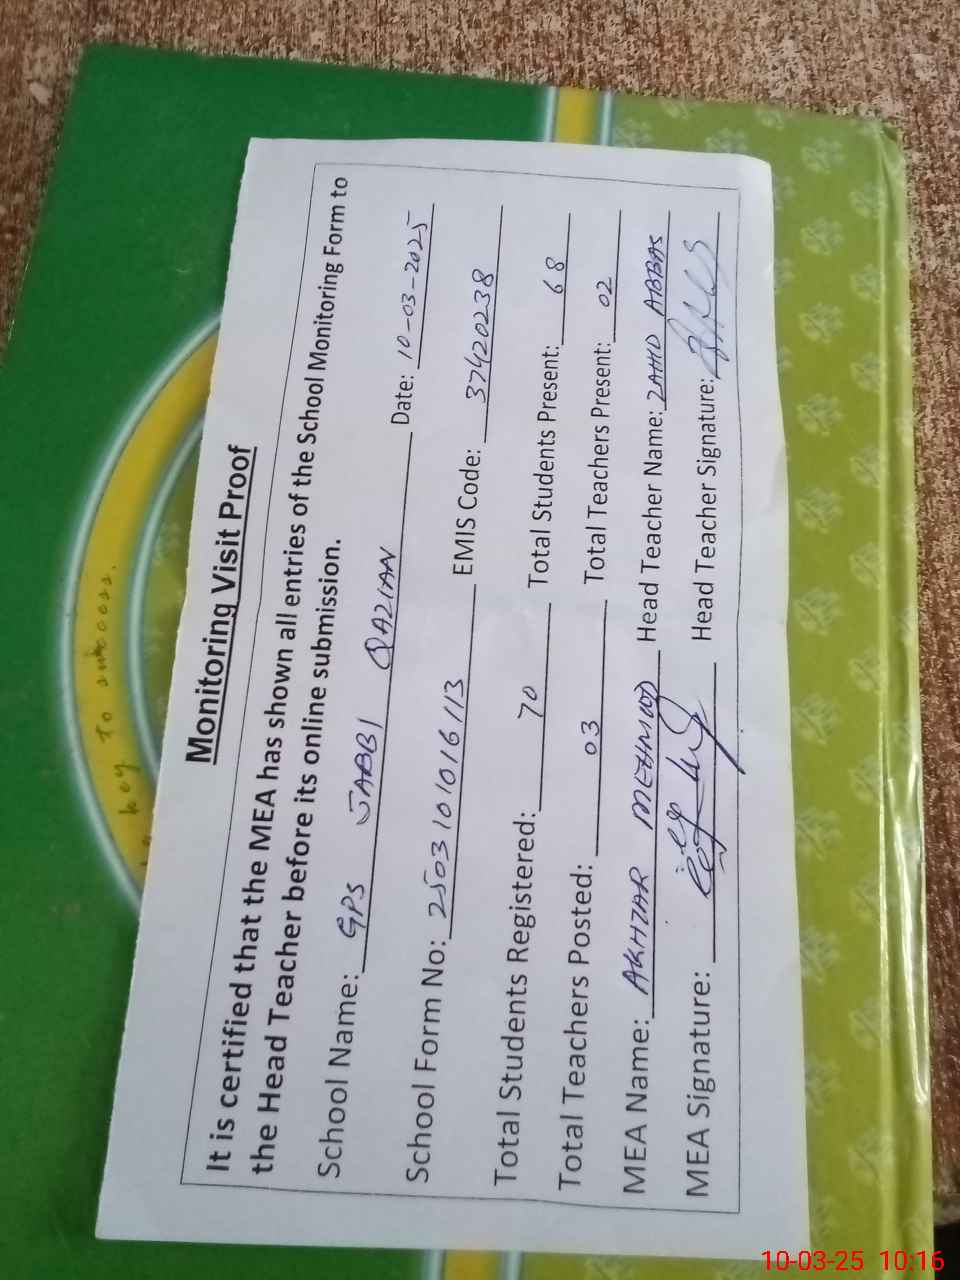 Monitoring Visit Proof
It is certified that the MEA has shown all entries of the School Monitoring Form to
the Head Teacher before its online submission.
School Name: GPS JABBI QAZIAN Date: 10-03-2025
School Form No: 2503101016113 EMIS Code: 37420238
Total Students Registered: 70 Total Students Present: 68
Total Teachers Posted: 03 Total Teachers Present: 02
MEA Name: AKHTAR MEHMOOD Head Teacher Name: ZAHID ABBAS
MEA Signature: Head Teacher Signature:
key To success.
10-03-25 10:16